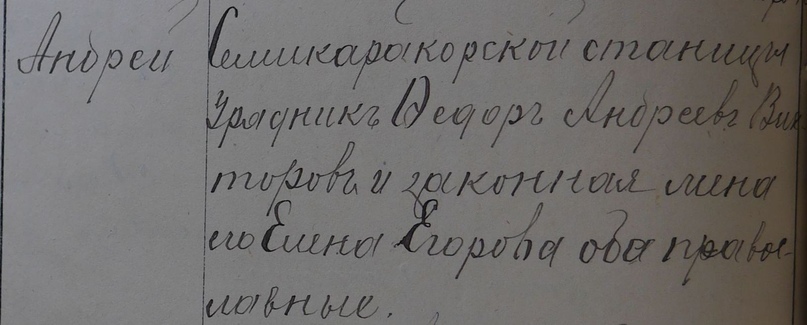 Андрей
Семикаракорской станицы
Урядникъ Ѳедоръ Андреевъ Вик
торовъ и законная жена
его Елена Егорова оба правос-
лавные.